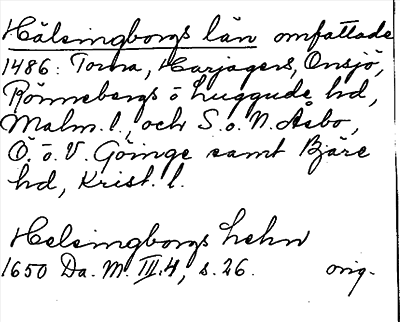 Hälsingborgs län omfattade
1486: Torna, Harjagers, Onsjö,
Rönnebergs o Luggude hd,
Malm. l., och S. o. N. Åsbo,
Ö. o. V. Göinge samt Bjäre
hd, Krist. l.
Helsingborgs lehn
1650 Da. M. III.4, s. 26. orig.